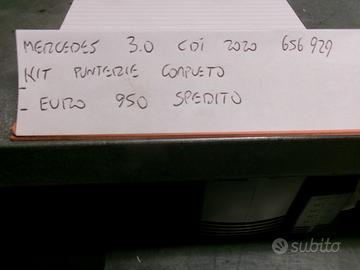 MERCEDES 3.0 CDI 2020 656929
KIT PUNTERIE COMPLETO
- EURO 950 SPEDITO
subito